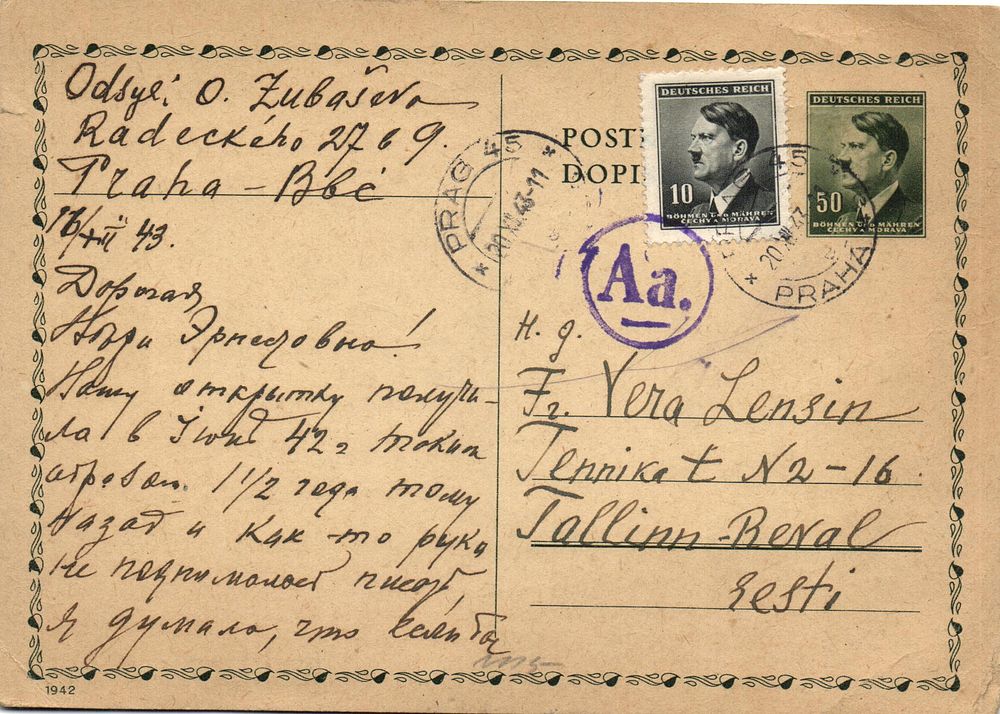 Odsyli O. Zubaševa
Radeckého 27 b 9.
Praha - Bbč
16/XII 43.
Дорогая
Нора Эрнестовна!
Нашу открытку получи-
ла в Iюнѣ 42 г
11/2 года тому
назад и как-то рука
не поднимается писать,
Я думала, что если бы
1942
POST
DOPI
DEUTSCHES REICH
10
BÖHMEN UND MÄHREN
ČECHY A MORAVA
DEUTSCHES REICH
50
BÖHMEN UND MÄHREN
ČECHY A MORAVA
* PRAG 45 *
20.XII.43-11
20.XII.43
* PRAHA 45
Aa.
H. g.
Fr. Vera Lensin
Tennika t N2-16
Tallinn-Reval
Eesti